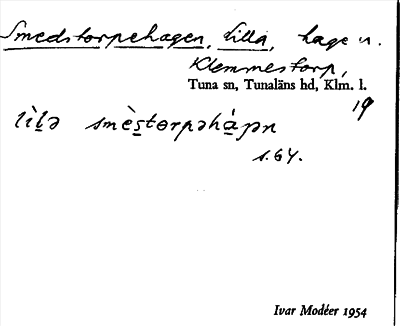 Smedstorpehagen, Lilla, hage n.
Klemmestorp,
Tuna sn, Tunaläns hd, Klm. l.
19
s. 64.
Ivar Modéer 1954